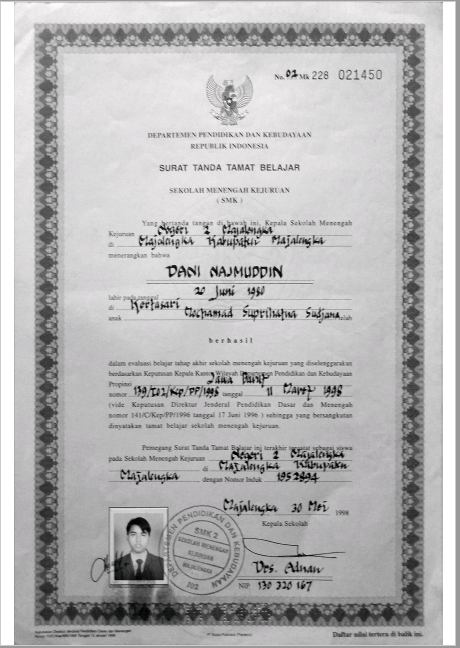 No. 02 Mk 228 021450
DEPARTEMEN PENDIDIKAN DAN KEBUDAYAAN
REPUBLIK INDONESIA
SURAT TANDA TAMAT BELAJAR
SEKOLAH MENENGAH KEJURUAN
( SMK )
Yang bertanda tangan di bawah ini, Kepala Sekolah Menengah
Kejuruan Negeri 2 Majalengka
di Majalengka Kabupaten Majalengka
menerangkan bahwa
DANI NAJMUDDIN
lahir pada tanggal 20 Juni 1980
di Kertasari
anak Mochamad Suprihatna Sudjana telah
berhasil
dalam evaluasi belajar tahap akhir sekolah menengah kejuruan yang diselenggarakan
berdasarkan Keputusan Kepala Kantor Wilayah Departemen Pendidikan dan Kebudayaan
Propinsi Jawa Barat
nomor 139/I02/Kep/PP/1998 tanggal 11 Maret 1998
(vide Keputusan Direktur Jenderal Pendidikan Dasar dan Menengah
nomor 141/C/Kep/PP/1996 tanggal 17 Juni 1996 ) sehingga yang bersangkutan
dinyatakan tamat belajar sekolah menengah kejuruan.
Pemegang Surat Tanda Tamat Belajar ini terakhir tercatat sebagai siswa
pada Sekolah Menengah Kejuruan Negeri 2 Majalengka
di Majalengka Kabupaten
Majalengka dengan Nomor Induk 1952894
Majalengka 30 Mei 1998
Kepala Sekolah
DEPARTEMEN PENDIDIKAN DAN KEBUDAYAAN
SMK 2
SEKOLAH MENENGAH
KEJURUAN
MAJALENGKA
Drs. Adnan
NIP 130 320 167
Daftar nilai tertera di balik ini.